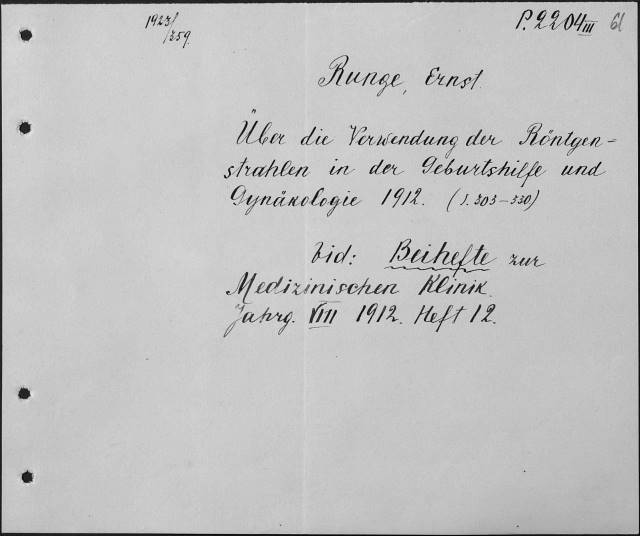 1923/
/359.
P.2204III 61
Runge, Ernst.
Über die Verwendung der Röntgen=
strahlen in der Geburtshilfe und
Gynäkologie 1912. (S. 303-330)
Vid: Beihefte zur
Medizinischen Klinik.
Jahrg. VIII 1912. Heft 12.